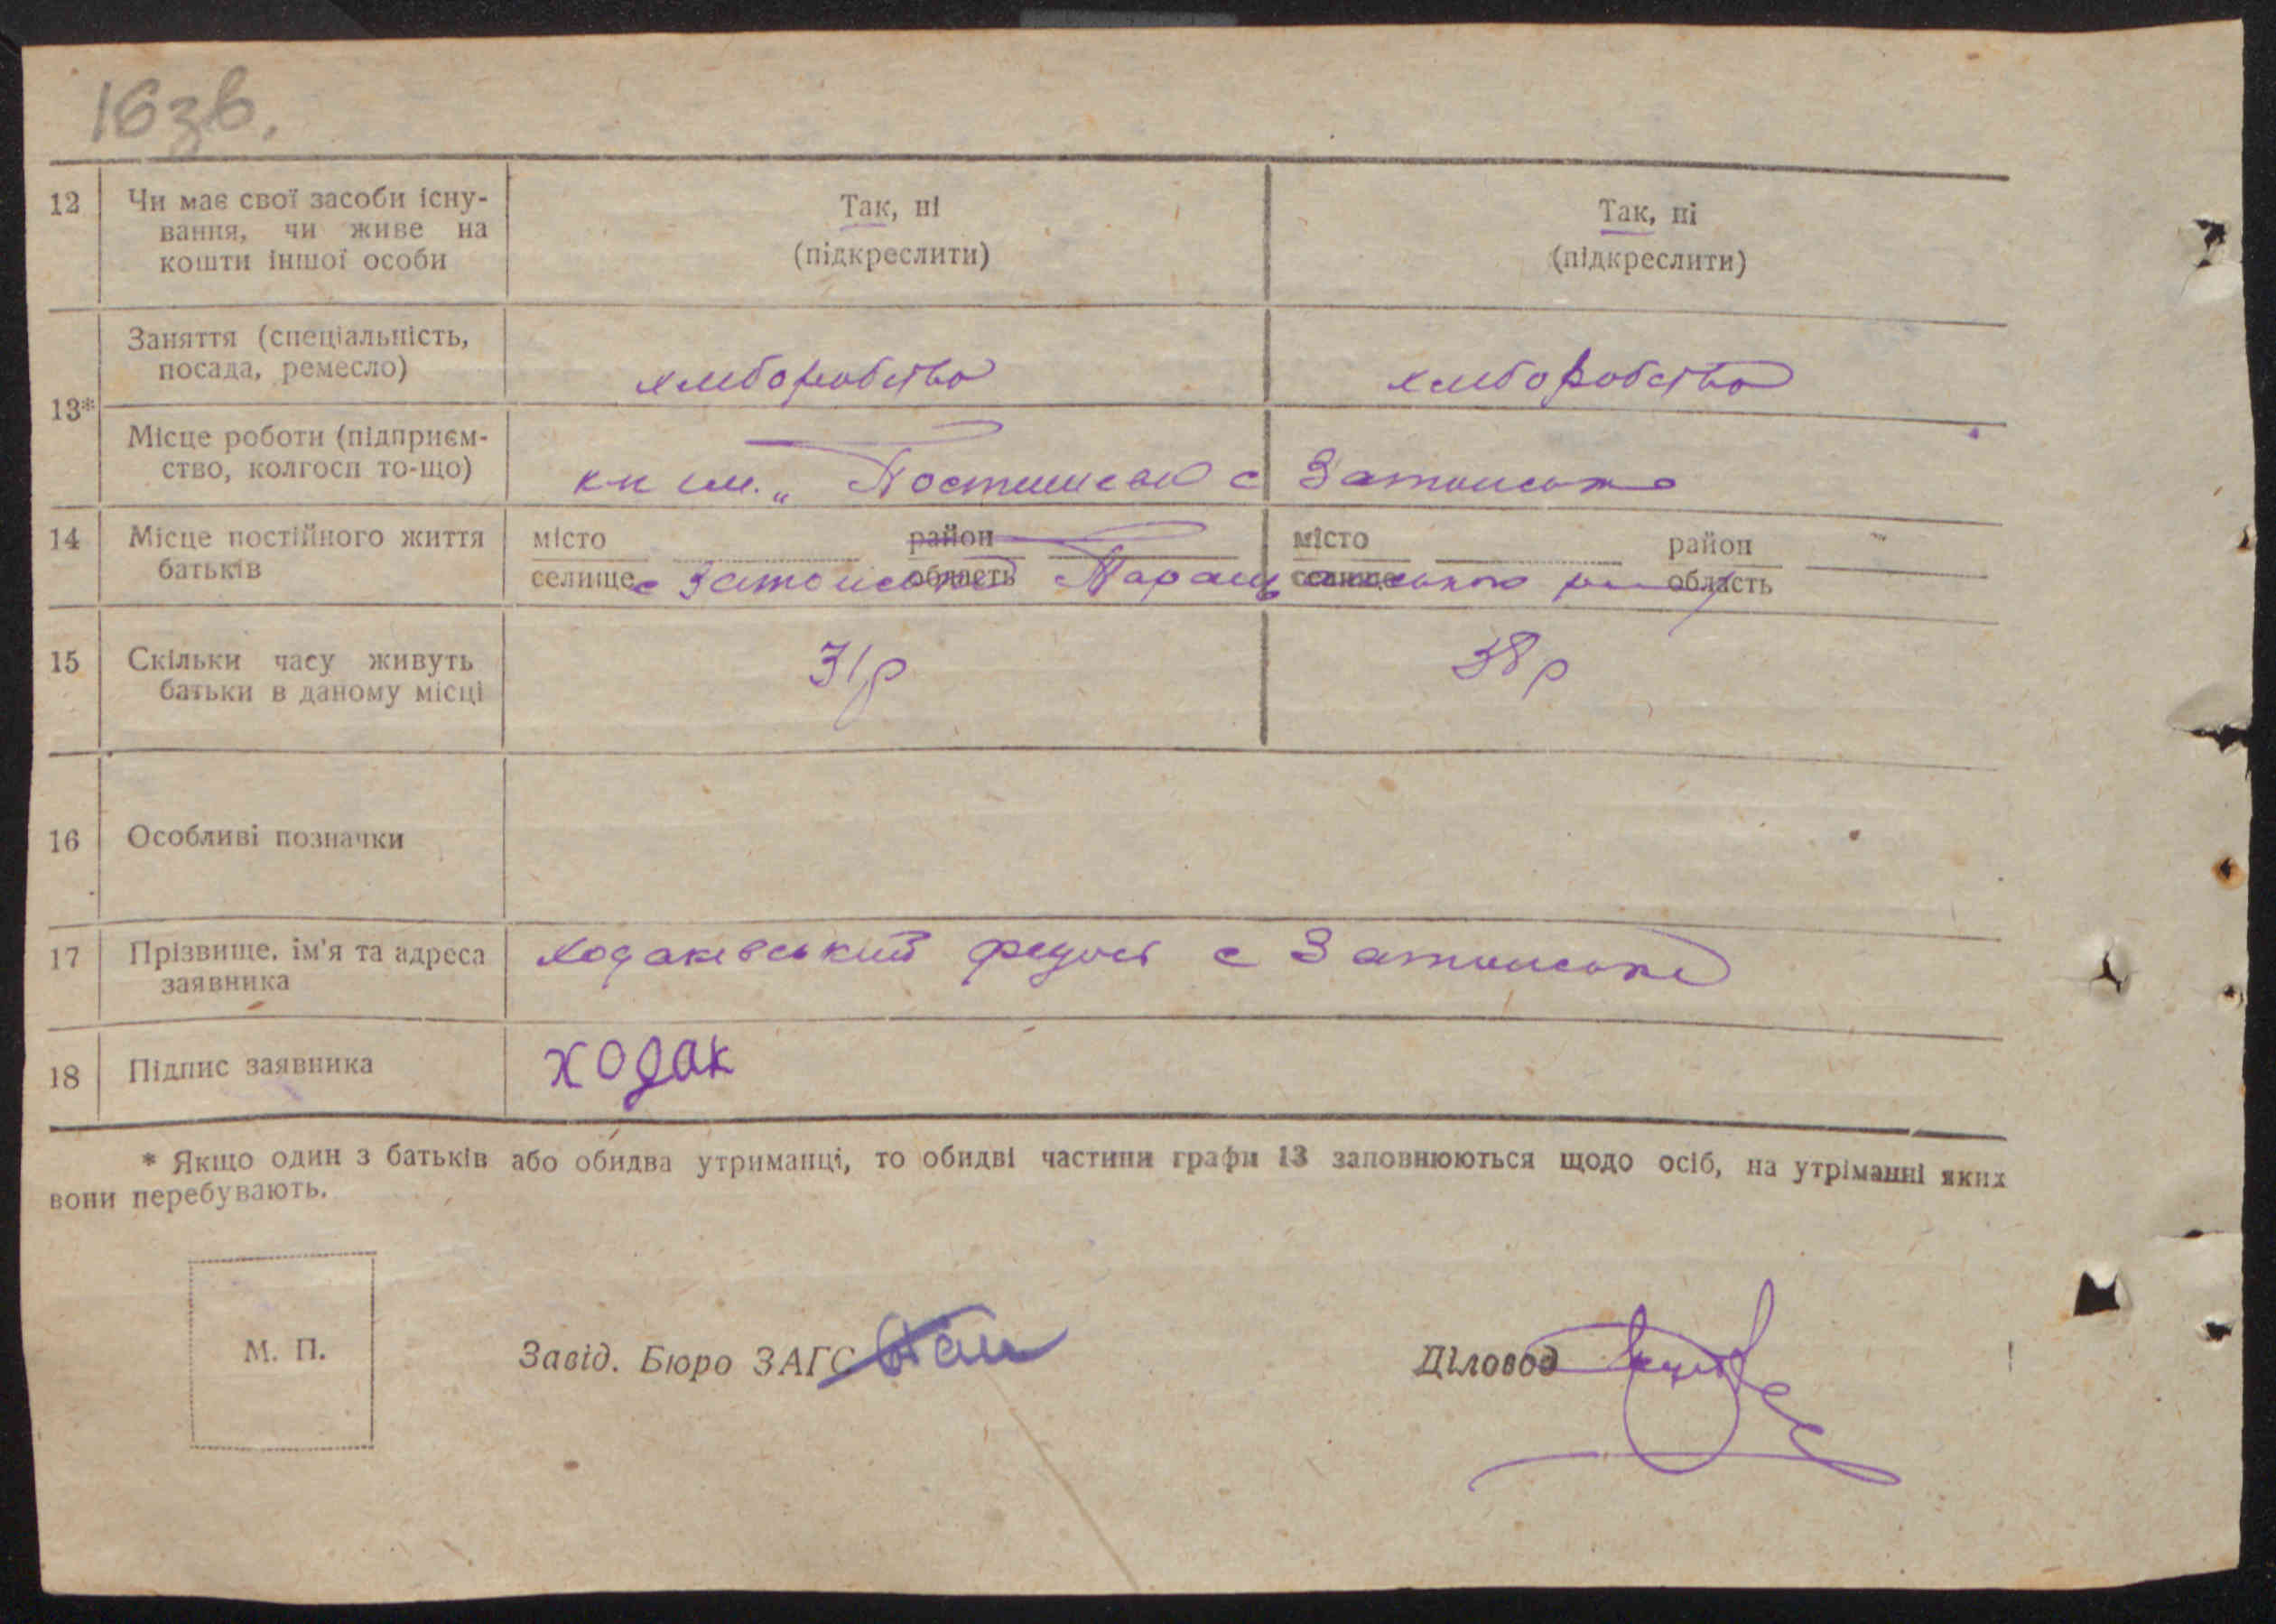 16зв.
12 Чи має свої засоби існу- Так, ні Так, ні
вання, чи живе на
кошти іншої особи (підкреслити) (підкреслити)
13* Заняття (спеціальність,
посада, ремесло) хліборобство хліборобство
Місце роботи (підприєм-
ство, колгосп то-що) к-п ім. „ Постишева с Затонське
14 Місце постійного життя місто район місто район
батьків селище с Затонське область селище область
15 Скільки часу живуть 31р 38р
батьки в даному місці
16 Особливі позначки
17 Прізвище, ім'я та адреса Ходаківський Федось с Затонське
заявника
18 Підпис заявника Ходак
* Якщо один з батьків або обидва утриманці, то обидві частини графи 13 заповнюються щодо осіб, на утріманні яких
вони перебувають.
М. П. Завід. Бюро ЗАГС Діловод